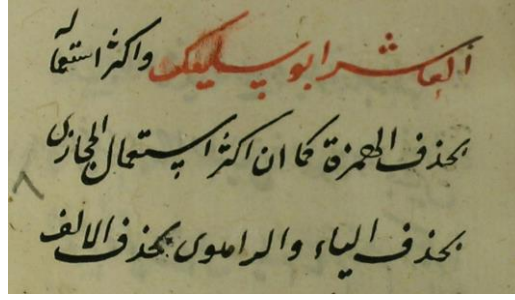 العاشر ابوسليك واكثر استعماله
بحذف الهمزة كما ان اكثر استعمال الحجازى
بحذف الياء والراهوى بحذف الالف